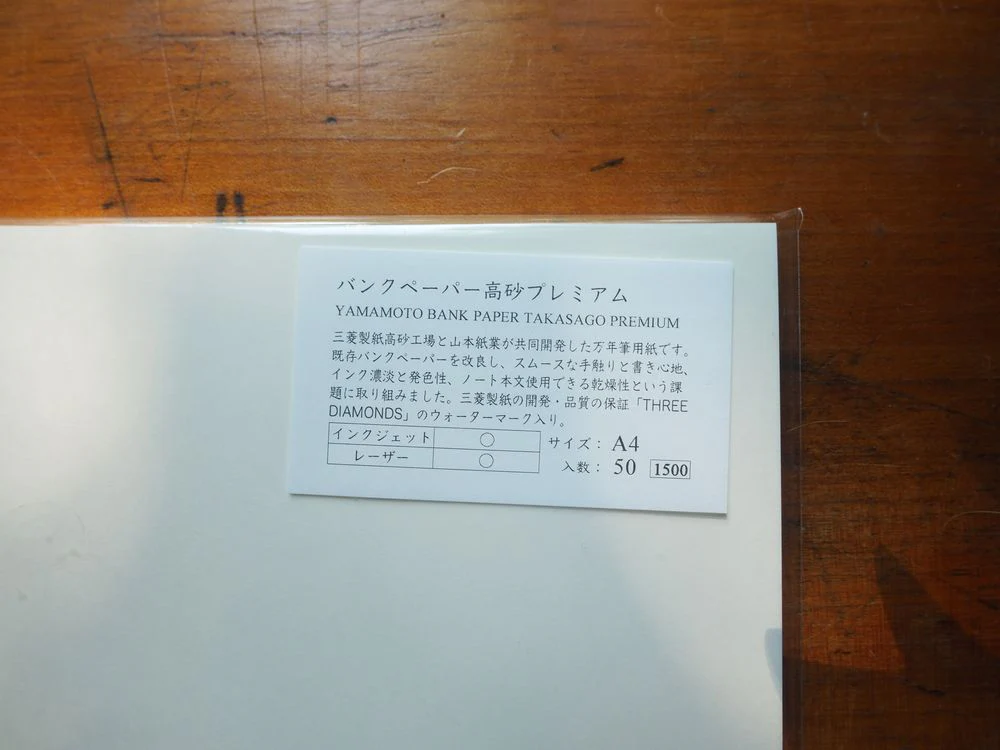 バンクペーパー高砂プレミアム
YAMAMOTO BANK PAPER TAKASAGO PREMIUM
三菱製紙高砂工場と山本紙業が共同開発した万年筆用紙です。
既存バンクペーパーを改良し、スムースな手触りと書き心地、
インク濃淡と発色性、ノート本文使用できる乾燥性という課
題に取り組みました。三菱製紙の開発・品質の保証「THREE
DIAMONDS」のウォーターマーク入り。
インクジェット ○ サイズ： A4
レーザー ○ 入数： 50 1500